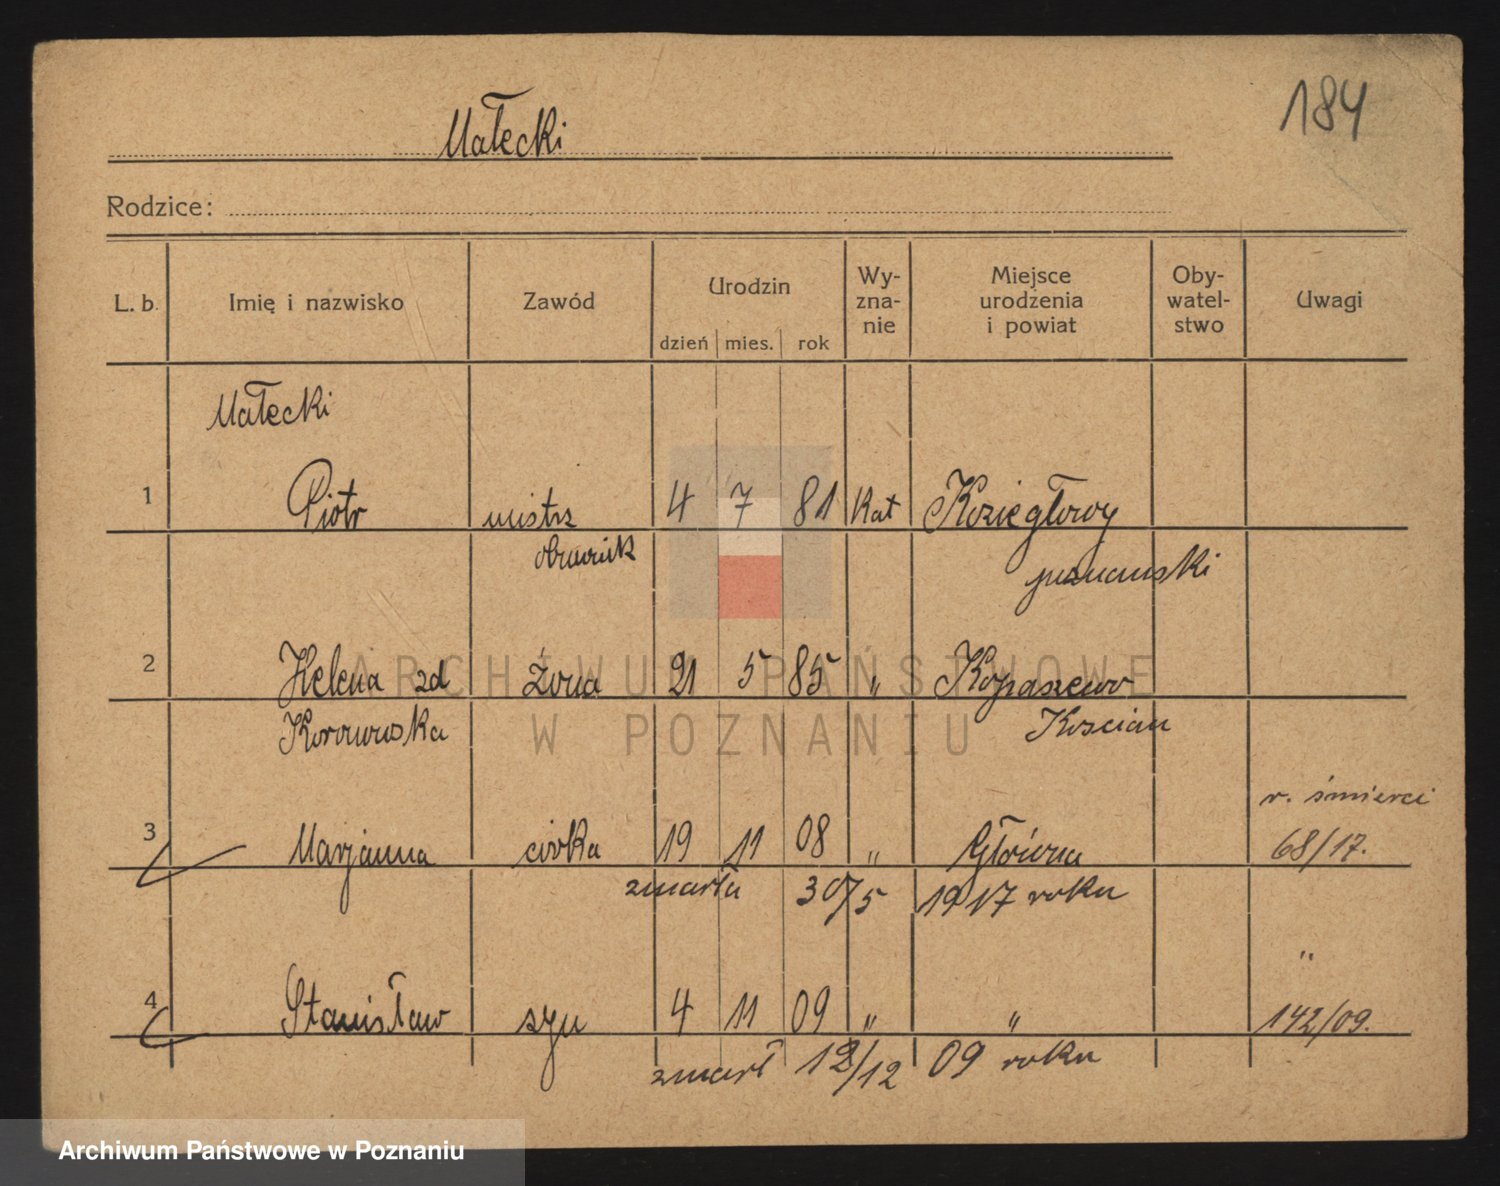 184
Małecki
Rodzice:
L. b. Imię i nazwisko Zawód Urodzin dzień mies. rok Wy-zna-nie Miejsce urodzenia i powiat Oby-watel-stwo Uwagi
Małecki
1 Piotr mistrz 4 7 81 Kat Koziegłowy
obuwnik poznański
2 Helena zd żona 21 5 85 " Kopaszewo
Korowuska Kościan
r. śmierci
3 Marjanna córka 19 11 08 " Główna 68/17.
zmarła 30/5 1917 roku
"
4 Stanisław syn 4 11 09 " " 142/09.
zmarł 12/12 09 roku
ARCHIWUM PAŃSTWOWE
W POZNANIU
Archiwum Państwowe w Poznaniu